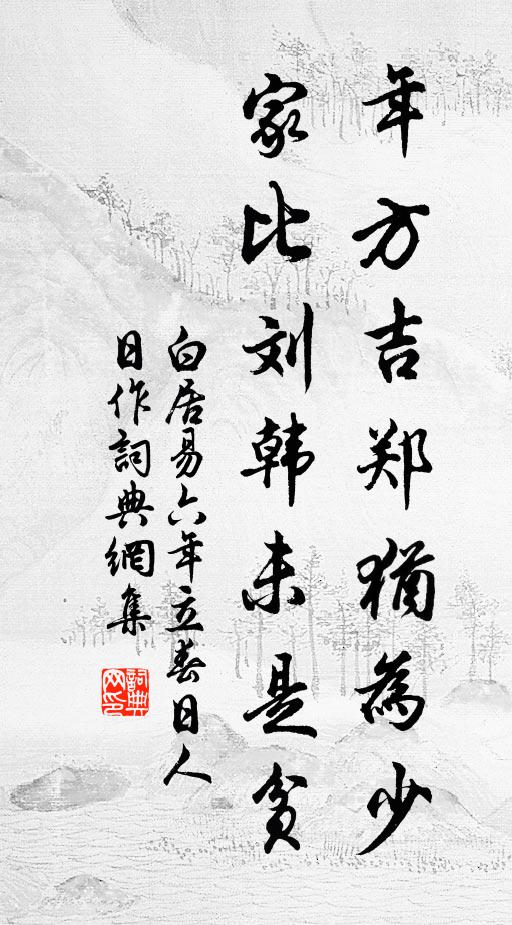 年方吉郑犹為少
家比刘韩未是贫
白居易六年立春日人
日作詞典網集
詞典
网印